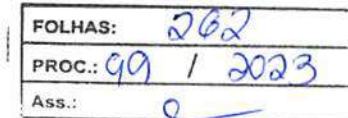 FOLHAS: 262
PROC.: 99 / 2023
Ass.: